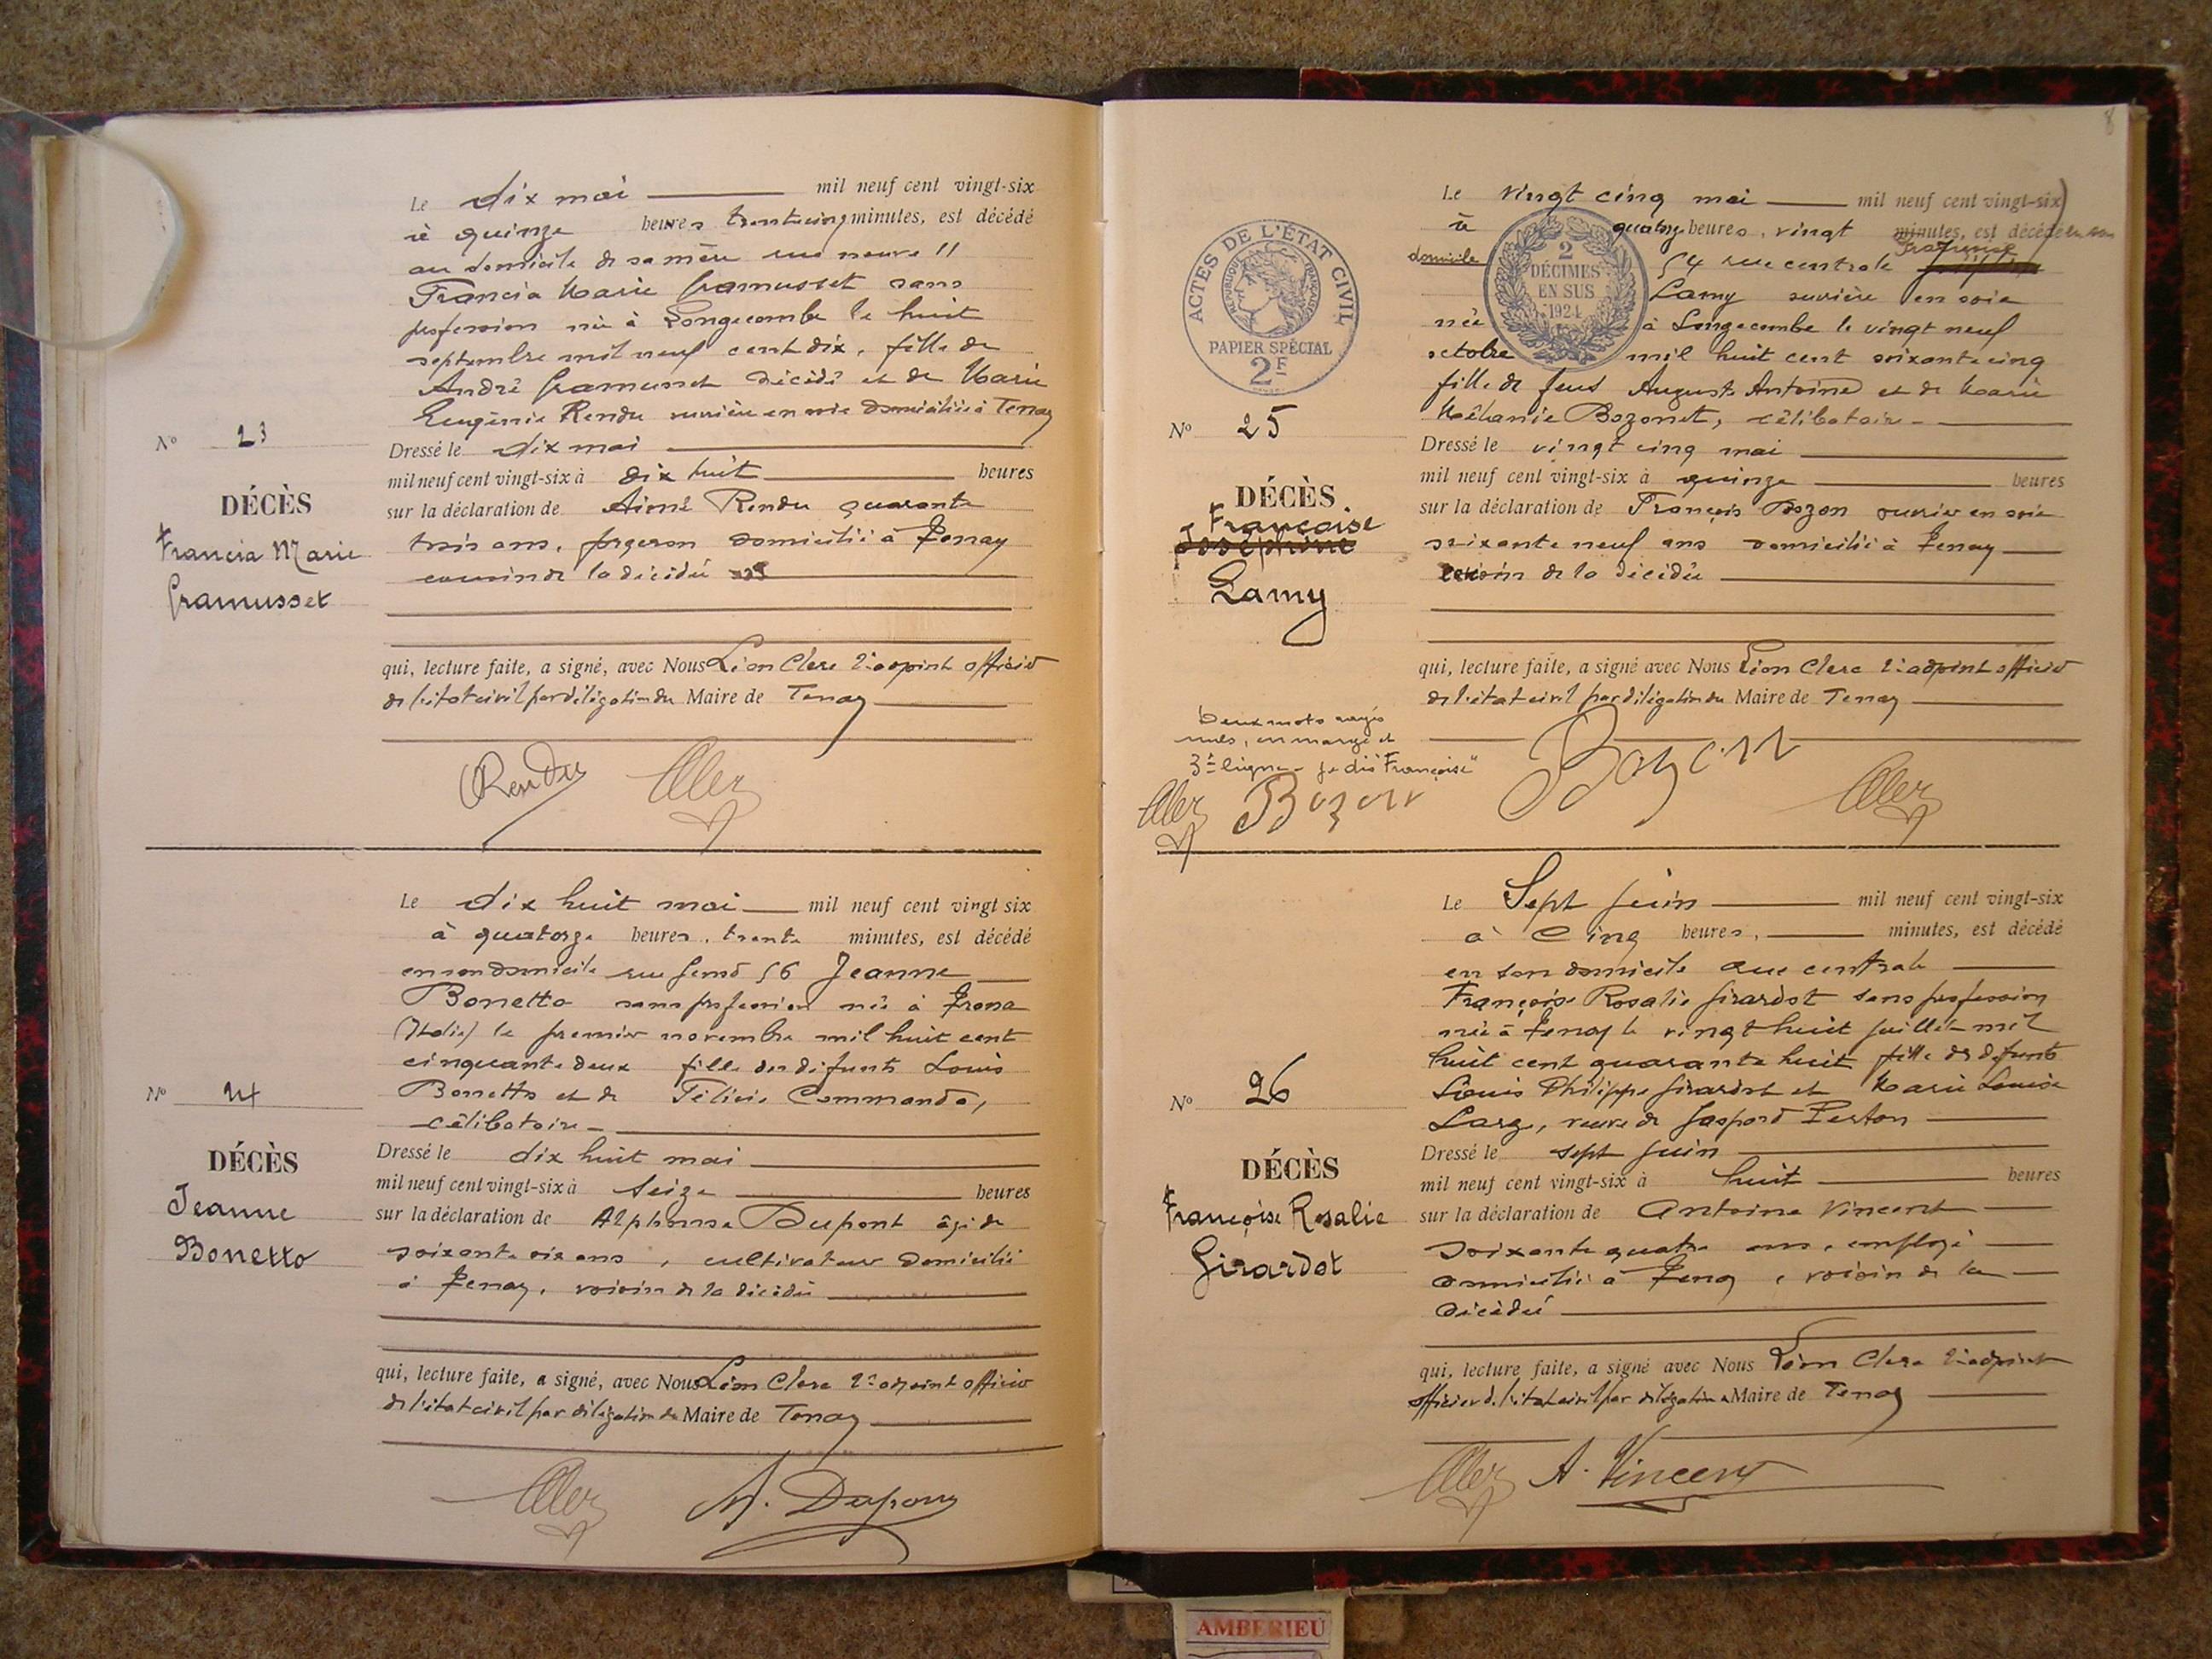 Le dix mai mil neuf cent vingt-six
à quinze heures trente cinq minutes, est décédé
au domicile de sa mère rue neuve 11
Francia Marie Gramusset sans
profession née à Longecombe le huit
septembre mil neuf cent dix, fille de
André Gramusset décédé et de Marie
Eugénie Rendu ouvrière en soie domiciliée à Tenay
N° 23
Dressé le dix mai
mil neuf cent vingt-six à dix huit heures
DÉCÈS
sur la déclaration de Aimé Rendu quarante
Francia Marie
trois ans, forgeron domicilié à Tenay
Gramusset
cousin de la décédée
qui, lecture faite, a signé, avec Nous Léon Clerc 2e adjoint officier
de l'état civil par délégation du Maire de Tenay
Rendu Clerc
Le dix huit mai mil neuf cent vingt six
à quatorze heures, trente minutes, est décédé
en son domicile rue 56 Jeanne
Bonetto sans profession née à
(Italie) le premier novembre mil huit cent
cinquante deux fille des défunts Louis
Bonetto et de Félicie Commando,
célibataire
N° 24
Dressé le dix huit mai
DÉCÈS
mil neuf cent vingt-six à seize heures
Jeanne
sur la déclaration de Alphonse Dupont âgé de
Bonetto
soixante six ans, cultivateur domicilié
à Tenay, voisin de la décédée
qui, lecture faite, a signé, avec Nous Léon Clerc 2e adjoint officier
de l'état civil par délégation du Maire de Tenay
Clerc A. Dupont
8
ACTES DE L'ÉTAT CIVIL
RÉPUBLIQUE FRANÇAISE
PAPIER SPÉCIAL
2F
2
DÉCIMES
EN SUS
1924
Le vingt cinq mai mil neuf cent vingt-six
à quatorze heures, vingt minutes, est décédée en son
domicile 54 rue centrale Joséphine Françoise
Lamy ouvrière en soie
née à Longecombe le vingt neuf
octobre mil huit cent soixante cinq
fille de feus Auguste Antoine et de Marie
Mélanie Bozonet, célibataire
N° 25
Dressé le vingt cinq mai
mil neuf cent vingt-six à quinze heures
DÉCÈS
sur la déclaration de François Bozon ouvrier en soie
Françoise
Joséphine
soixante neuf ans domicilié à Tenay
Lamy
cousin de la décédée
qui, lecture faite, a signé avec Nous Léon Clerc 2e adjoint officier
de l'état civil par délégation du Maire de Tenay
Deux mots rayés
nuls, en marge et
3e ligne - "Françoise"
Clerc Bozon Bozon Clerc
Le Sept juin mil neuf cent vingt-six
à Cinq heures, minutes, est décédé
en son domicile rue centrale
Françoise Rosalie Girardot sans profession
née à Tenay le vingt huit juillet mil
huit cent quarante huit fille de défunts
Louis Philippe Girardot et Marie Louise
Larg, veuve de Gaspard Perton
N° 26
Dressé le sept juin
DÉCÈS
mil neuf cent vingt-six à huit heures
Françoise Rosalie
sur la déclaration de Antoine Vincent
Girardot
soixante quatre ans, employé
domicilié à Tenay, voisin de la
décédée
qui, lecture faite, a signé avec Nous Léon Clerc 2e adjoint
officier de l'état civil par délégation Maire de Tenay
Clerc A. Vincent
AMBERIEU